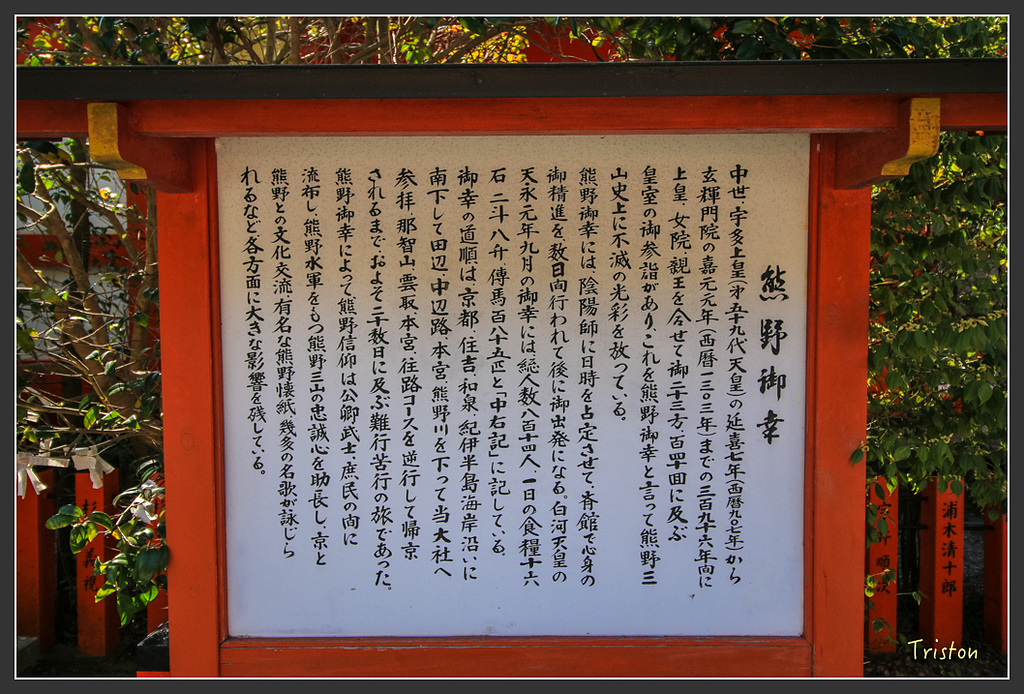 熊野御幸
中世、宇多上皇(才五十九代天皇)の延喜七年(西暦九〇七年)から
玄輝門院の嘉元元年(西暦一三〇三年)までの三百九十六年向に
上皇、女院、親王を合せて御二十三方、百四十回に及ぶ
皇室の御参詣があり、これを熊野御幸と言って熊野三
山史上に不滅の光彩を放っている。
熊野御幸には、陰陽師に日時を占定させて、斉館で心身の
御精進を数日向行われて後に御出発になる。白河天皇の
天永元年九月の御幸には総人数八百十四人、一日の食糧十六
石二斗八升、傳馬百八十五疋と「中右記」に記している。
御幸の道順は、京都、住吉、和泉、紀伊半島海岸沿いに
南下して田辺、中辺路、本宮、熊野川を下って当大社へ
参拝、那智山、雲取、本宮、往路コースを逆行して帰京
されるまでおよそ二十数日に及ぶ難行苦行の旅であった。
熊野御幸によって熊野信仰は公卿、武士、庶民の向に
流布し、熊野水軍をもつ熊野三山の忠誠心を助長し、京と
熊野との文化交流、有名な熊野懐紙、幾多の名歌が詠じら
れるなど各方面に大きな影響を残している。
浦木清十郎
Triston